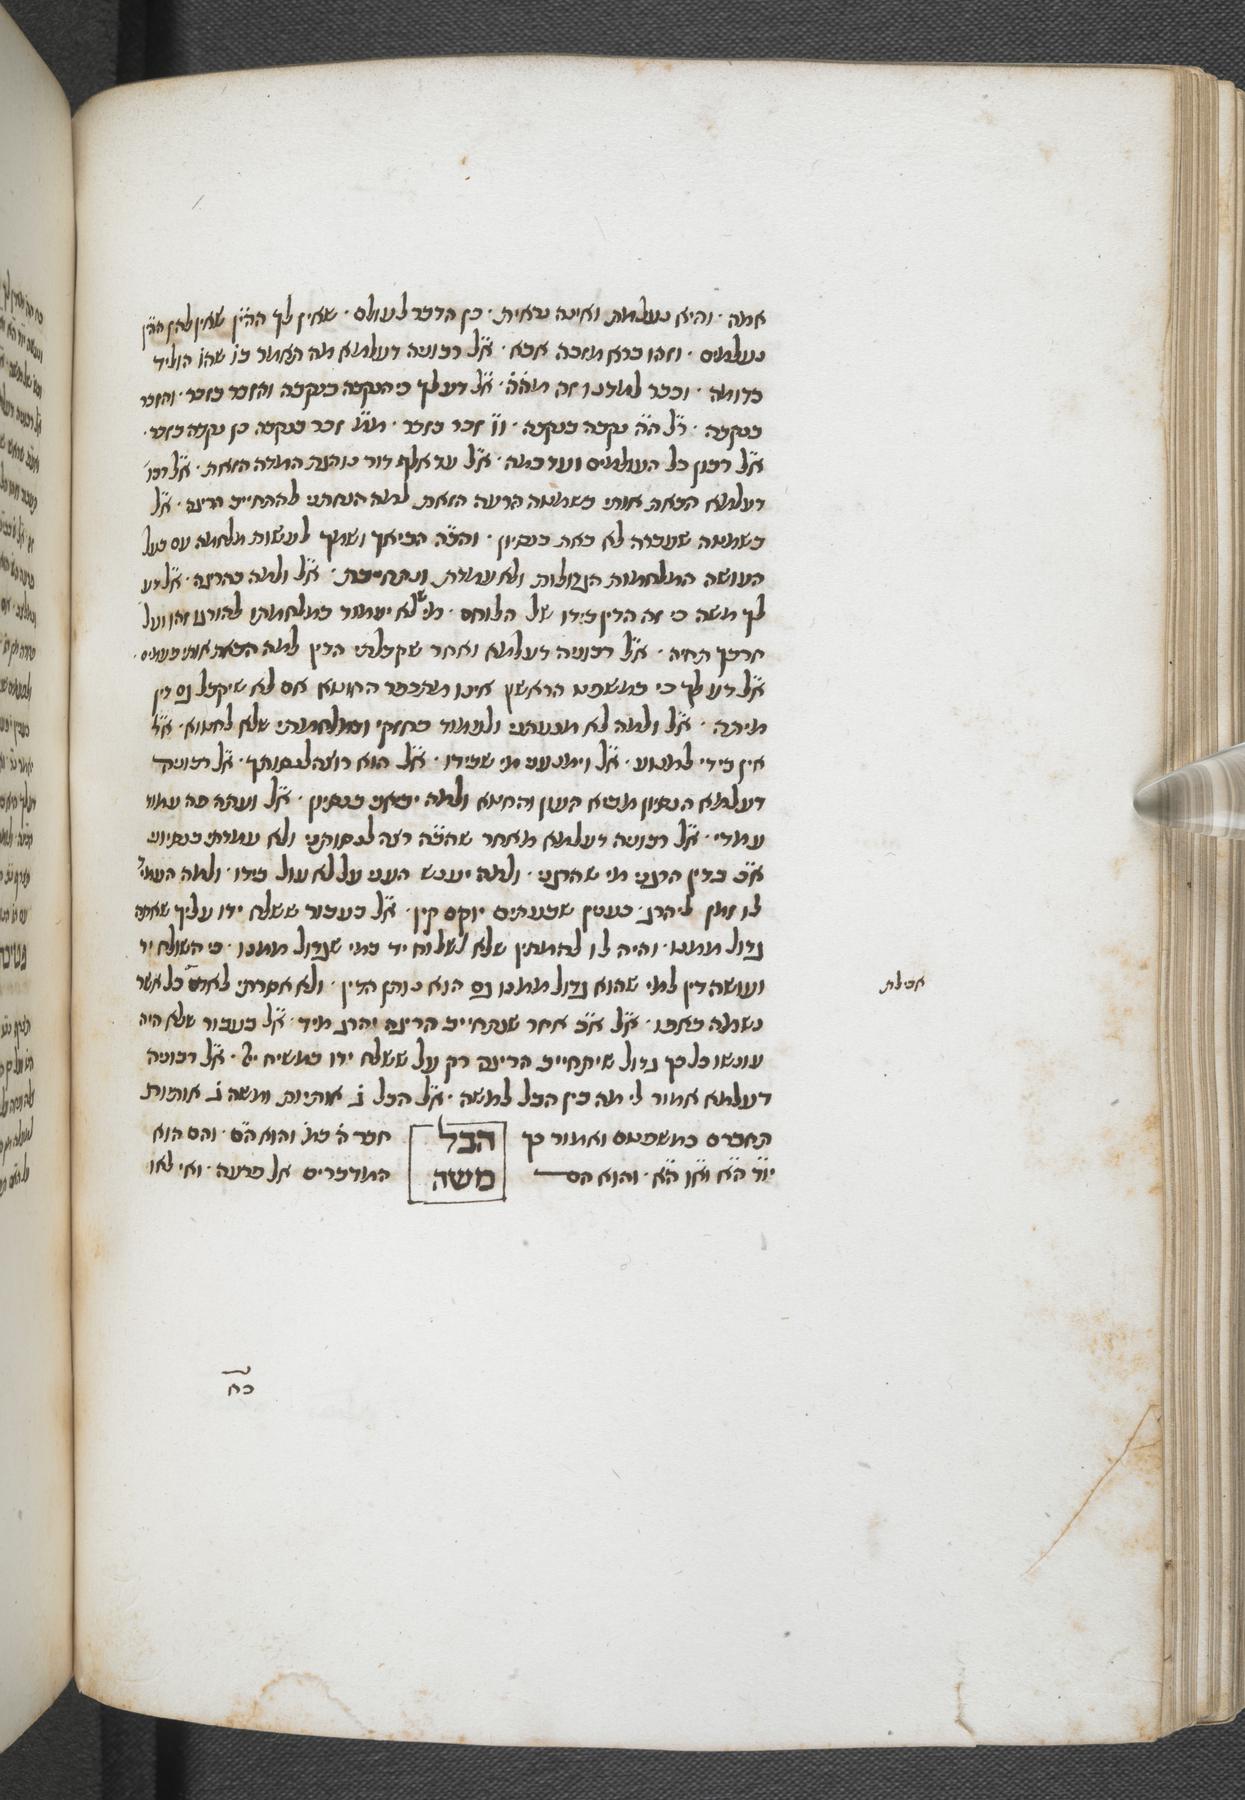 אמה · והיא נעלמת ואינה נראית · כן הדבר לעולם · שאין לך ההין שאין להן ההין
נעלמים · וזהו ברא מזכה אבא · א״ל רבוניה דעלמא מה תאמר בו שהו הוליד
כדומה · וכבר למדנו זה מה״ה · א״ל דע לך כי הנקבה בנקבה והזכר בזכר · והזכר
בנקבה · ר״ל ה״ה נקבה בנקבה · ו״ו זכר בזכר · זכר בנקבה כן נקבה בזכר ·
א״ל רבון כל העולמים ועד כמה · א״ל עד אלף דור נוהגת המדה הזאת · א״ל רבו׳
דעלמא הבאת אותי בשמטה הרעה הזאת למה הנחתני להתחייב הריגה · א״ל
בשמטה שעברה לא באת בנסיון · והקב״ה הביאך ושמך לעשות מלחמה עם בעל
העושה המלחמות הגדולות ולא עמדת ונתחייבת · א״ל ולמה בהריגה · א״ל דע
לך משה כי זה הדין בידו של הלוחם · מי שלא יעמוד במלחמתו להורגו זהו ועל
חרבך תחיה · א״ל רבוניה דעלמא ואחר שקבלתי הדין למה הבאת אותי פעמים ·
א״ל דע לך כי במשפט הראשון אינו מתכפר החוטא אם לא שיקבל גם דין
מיתה · א״ל ולמה לא מנעתני ולעמוד בחזקי ומלחמתי שלא לחטוא · א״ל
אין בידי למנוע · א״ל וימנענו מי שבידו · א״ל הוא רוצה לנסותך · א״ל רבוניה
דעלמא הנסיון מביא העון והחטא ולמה יביאנו בנסיון · א״ל ועתה פה עמוד
עמדי · א״ל רבוניה דעלמא מאחר שהקב״ה רצה לנסותני ולא עמדתי בנסיוני
א״כ בדין הרגני מי שהרגני · ולמה יענש הענו על לא עול בידו · ולמה העני׳
לו זמן ליהרג · כעניין שבעתים יוקם קין · א״ל בעבור ששלח ידו עליך שאתה
גדול ממנו · והיה לו להמתין שלא לשלוח יד במי שגדול ממנו · כי השולח יד
ועושה דין למי שהוא גדול ממנו גם הוא נותן הדין · ולא אמרתי לאדם כל אשר
נשמה באפו · א״ל א״כ אחר שנתחייב הריגה יהרג מיד · א״ל בעבור שלא היה
עונשו כל כך גדול שיתחייב הריגה רק על ששלח ידו במשיח י״י · א״ל רבוניה
דעלמא אמור לי מה בין הבל למשה · א״ל הבל ג׳ אותיות ומשה ג׳ אותיות
תחברם במשפטם ואמור כך הבל חבר ה׳ מ״נ והוא ה״ם · והם הוא
יו״ד ה״א וא״ו ה״א · והוא הם משה המדברים אל פרעה · ואי לאו
אכילת
כח